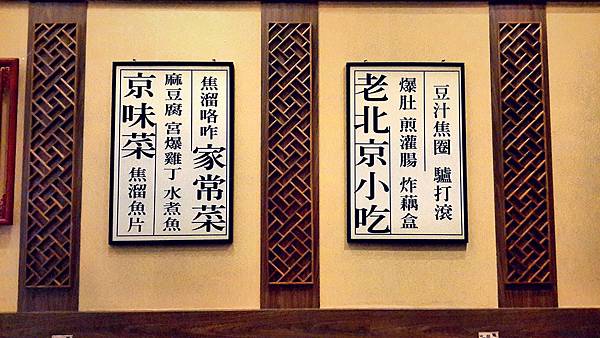 焦溜咯咋 家常菜
麻豆腐 宮爆雞丁 水煮魚
京味菜 焦溜魚片
豆汁焦圈 驢打滾
爆肚 煎灌腸 炸藕盒
老北京小吃